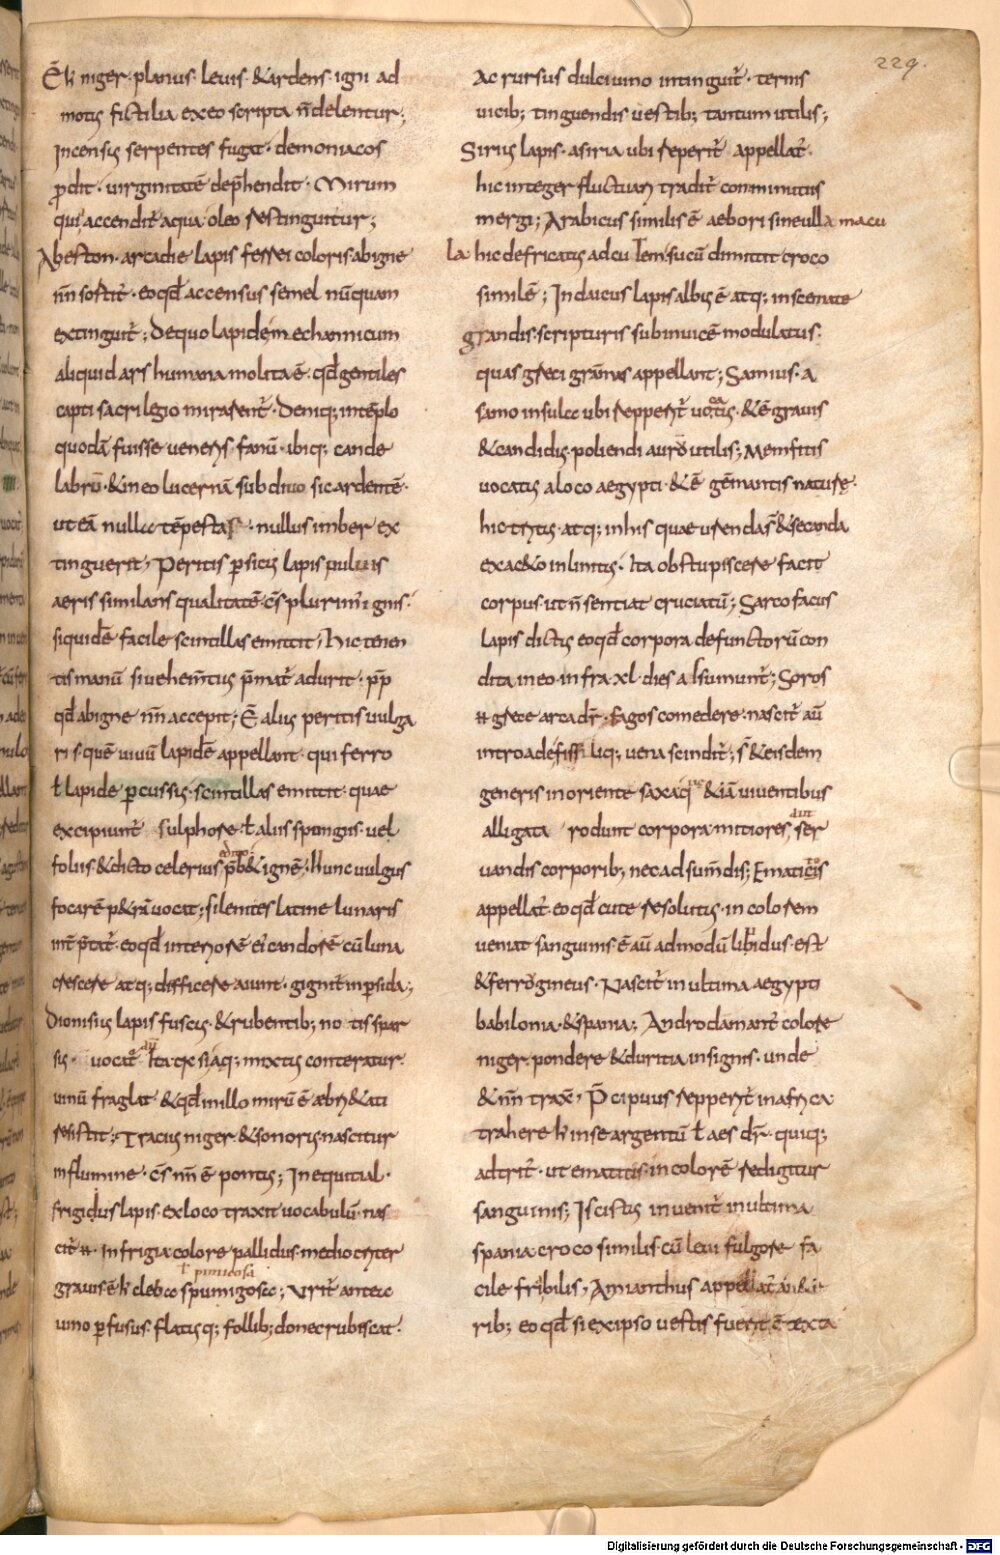 Ē h niger · planus · leuis · & ardens · igni ad
motus fictilia ex eo scripta n̄ delentur ;
Incensus serpentes fugat · demoniacos
ꝓdit · uirginitatē dep̄hendit · Mirum
qui accendit̄ aqua · oleo restinguitur ;
Abeston · arcadie lapis ferrei coloris ab igne
nm̄ sortit̄ · eo qd̄ accensus semel nūquam
extinguit̄ ; De quo lapide mechannicum
aliquid ars humana molita ē · qd̄ gentiles
capti sacrilegio mirarent̄ · Deniq; in tēplo
quodā fuisse ueneris · fanū · ibiq; cande
labrū · & in eo lucernā sub diuo sic ardentē ·
ut eā nulla tēpestas · nullus imber ex
tinguerit ; Peritis ꝑsicus lapis fuluus
aeris similans qualitatē · c̄s plurim̄ ignis ·
siquidē facile scintillas emittit ; Hic tenen
tis manū si uehem̄tius p̄mat̄ adurit · pp̄
qd̄ ab igne nm̄ accepit ; Ē alius peritis uulga
ris · quē uiuū lapidē appellant · qui ferro
ł lapide ꝑcussus · scintillas emittit · quae
excipiunt̄ sulphore · ł aliis spungiis · uel
foliis & dicto celerius p̄b& ignē · Hunc uulgus
focarē p&rā uocat ; silenites latine lunaris
int̄p̄tat̄ · eo qd̄ interiorē ei candorē cū luna
crescere atq; difficere aiunt · gignit̄ in ꝑsida ;
Dionisius lapis fuscus · & rubentib; notis spar
sus · uocat̄ aut̄ ita · qr̄ si aq; mixtus conteratur ·
uinū fraglat · & qd̄ in illo mirū ē æbri&ati
resistit ; Tracius niger & sonorus nascitur
in flumine · c̄s nm̄ ē pontus ; In equital ·
frigidus lapis · ex loco traxit uocabulū · nas
cit̄ n̄ · in frigia · colore pallidus · mediocriter
ł pumicosa
grauis ē h cleba spumigosa ; Urit̄ antea
uino ꝑfusus · flatusq; follib; donec rubiscat ·
229.
Ac rursus dulci uino intinguit̄ · ternis
uicib; tinguendis uestib; tantum utilis ;
Sirius lapis · asiria ubi reperit̄ appellat̄ ·
hic integer fluctuari tradit̄ comminutus
mergi ; Arabicus similis ē aebori sine ulla macu
la · hic defricatus ad cu lem sucū dimittit croco
similē ; Indaicus lapis albus ē atq; in scenate
grandis · scripturis subinuicē modulatus ·
quas greci grāmas appellant ; Samius · a
samo insula ubi repperit̄ uocatus · & ē grauis
& candidus · poliendi auro utilis ; Memfitis
uocatus a loco aegypti · & ē gēmantis nature ·
hic tritus · atq; in his quae urenda st̄ & secanda
ex ac&o inlinitus · Ita obstupiscere facit
corpus · ut n̄ sentiat cruciatū ; Sarcofacus
lapis dictus eo qd̄ corpora defunctorū con
dita in eo · infra · xl · dies absumunt̄ ; Soros
n̄ grece arca dr̄ · fagos comedere · nascit̄ aū
in troade fissiliq; uena scindit̄ ; s̄ & eisdem
generis in oriente saxa &iā uiuentibus
alligata rodunt corpora · mitiores ser
uandis corporib; nec adsum̄dis ; Ematicis
appellat̄ · eo qd̄ cute resolutus · in colorem
ueniat sanguinis · ē aū admodū libidus · est
& ferrogineus · Nascit̄ in ultima aegypto
babilonia · & spania ; Androdamant̄ colore
niger · pondere & duritia insignis · unde
& nm̄ traxē · P̄cipuus repperit̄ in africa
trahere h in se argentū ł aes dr̄ · quiq;
adtrit̄ · ut ematitis · in colorē redigitur
sanguinis ; Iscistus inuenit̄ in ultima
spania · croco similis · cū leui fulgore fa
cile fribilis ; Amianthus appellat̄
rib; eo qd̄ si ex ipso uestis fuerit ē texta
Digitalisierung gefördert durch die Deutsche Forschungsgemeinschaft - DFG